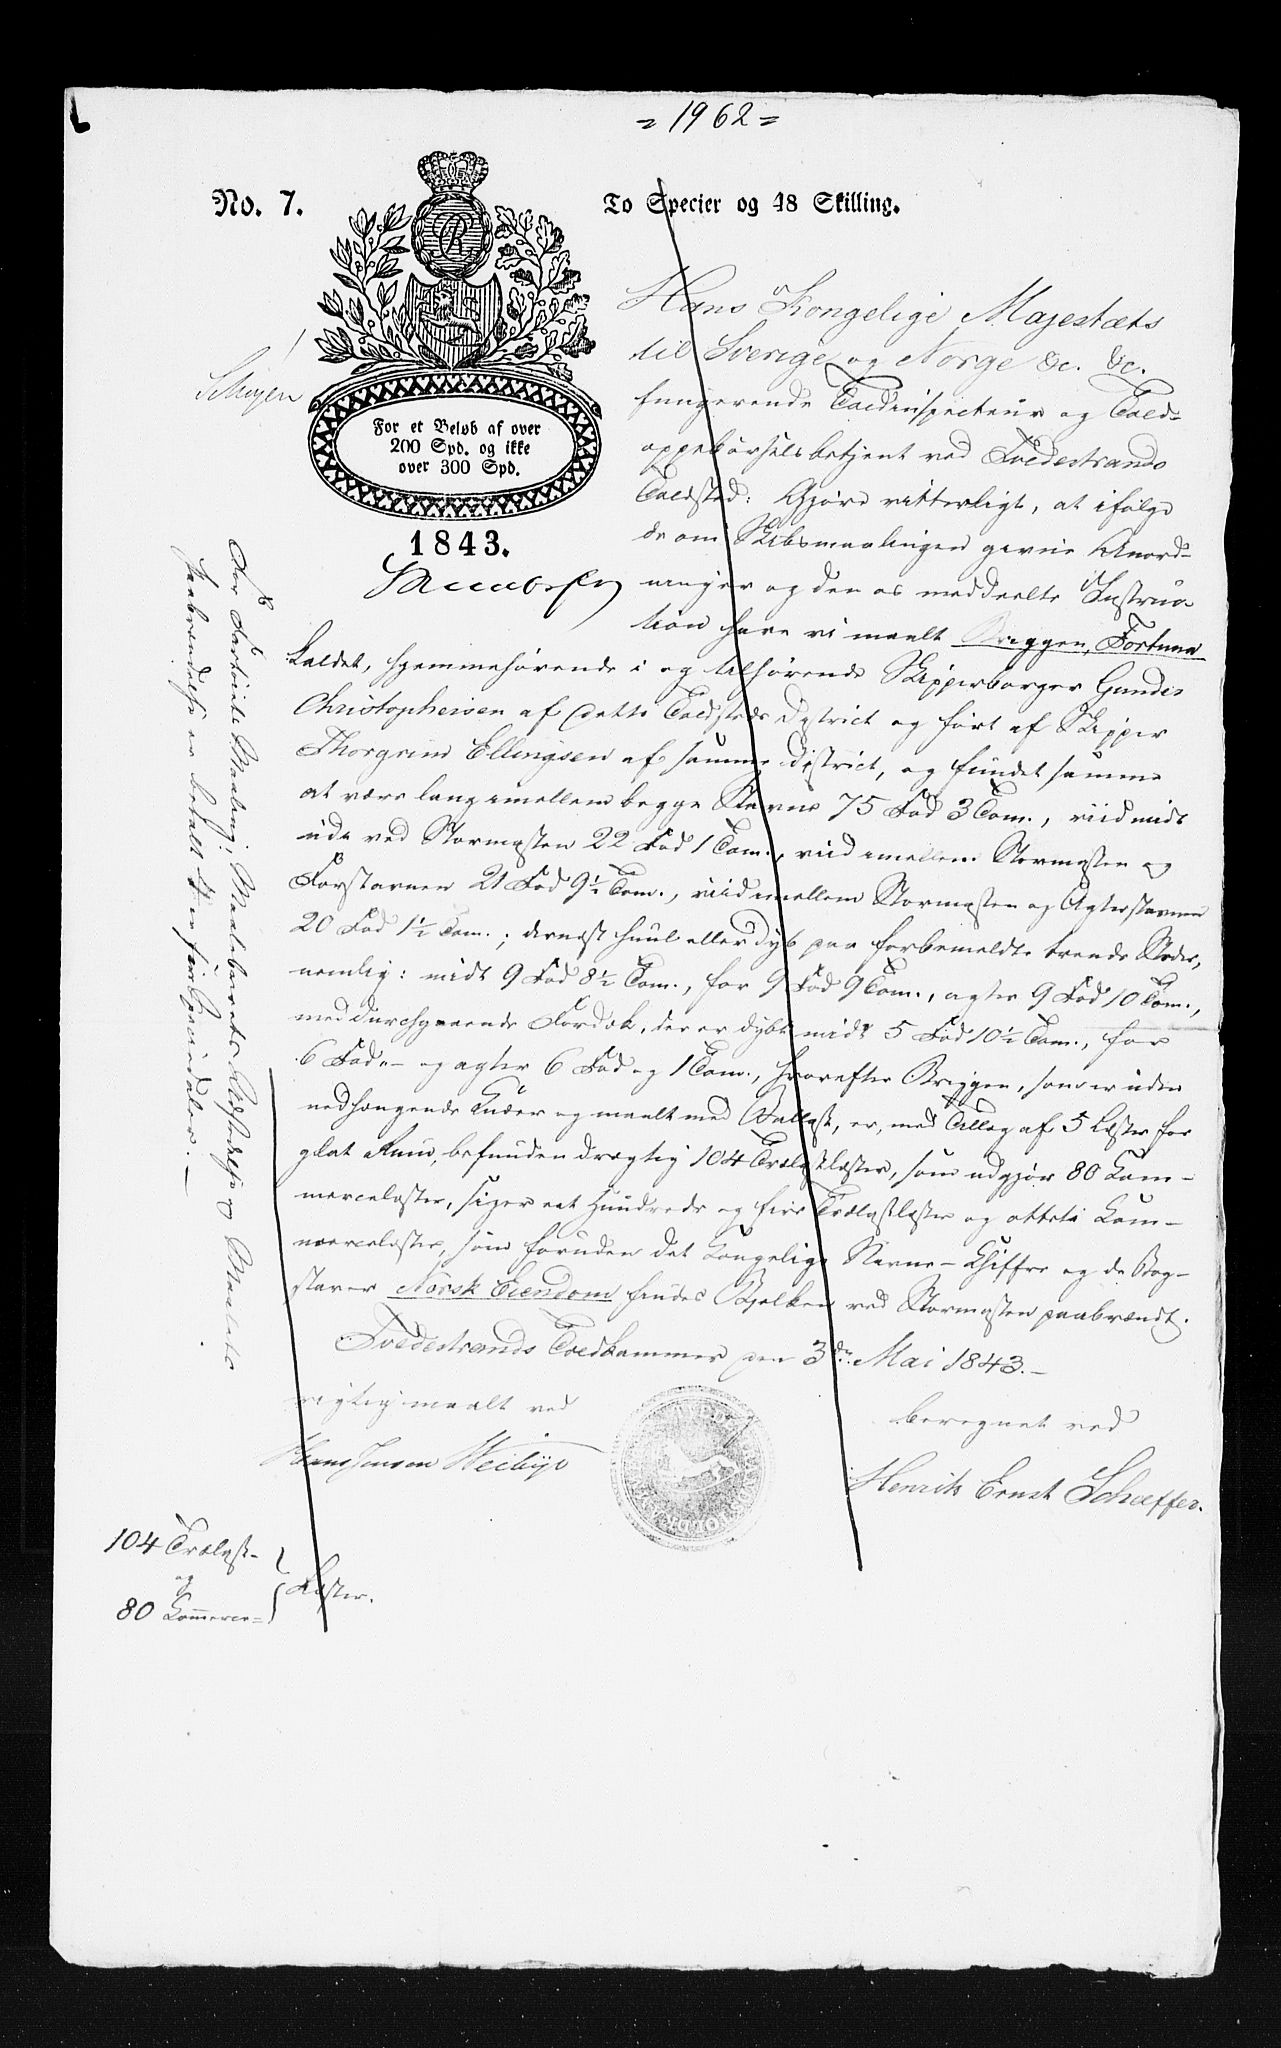 = 1962 =
No. 7.
To Specier og 48 Skilling.
For et Beløb af over
200 Spd. og ikke
over 300 Spd.
1843.
Hans Kongelige Majestæts
til Sverige og Norge &c. &c.
fungerende Toldinspecteur og Told-
oppebørselsbetjent ved Tvedestrands
Toldsted: Gjøre vitterligt, at ifølge
de om Skibsmaalingen givne Anord-
ninger og den os meddeelte Instruc-
tion have vi maalt Briggen, Fortuna
kaldet, hjemmehørende i og tilhørende Skipperborger Gunder
Christophersen af dette Toldsteds District og ført af Skipper
Thorgrim Ellingsen af samme District, og fundet samme
at være lang imellem begge Stævne 75 Fod 3 Tom., viid midt
ude ved Stormasten 22 Fod 1 Tom., viid imellem Stormasten og
Forstavnen 21 Fod 9½ Tom., viid imellem Stormasten og Agterstavnen
20 Fod 1½ Tom.; dernæst huul eller dyb paa forbemeldte trende Steder,
nemlig: midt 9 Fod 8½ Tom., for 9 Fod 9 Tom., agter 9 Fod 10 Tom.,
med durchgaaende Fordæk, der er dybt midt 5 Fod 10½ Tom., for
6 Fod - og agter 6 Fod og 1 Tom., hvorefter Briggen, som er uden
nedhængende Knæer og maalt med Ballast, er, med Tillæg af 5 Læster for
glat Rum, befunden drægtig 104 Trælastlæster, som udgjør 80 Com-
mercelæster, siger eet Hundrede og fire Trælastlæster og otteti Com-
mercelæster, som foruden det Kongelige Navne-Chiffre og de Bog-
staver Norsk Eiendom findes Bjelken ved Stormasten paabrændt.
Tvedestrands Toldkammer den 3die Mai 1843.-
rigtig maalt ved
Hans Jensen Weibye
beregnet ved
Henrik Ernst Schæffer.
104 Trælast-
og
80 Commerce-
Læster.
For Fartøiets Maaling, Maalebrevets Udfærdigelse og Maalets
Paabrændelse er betalt